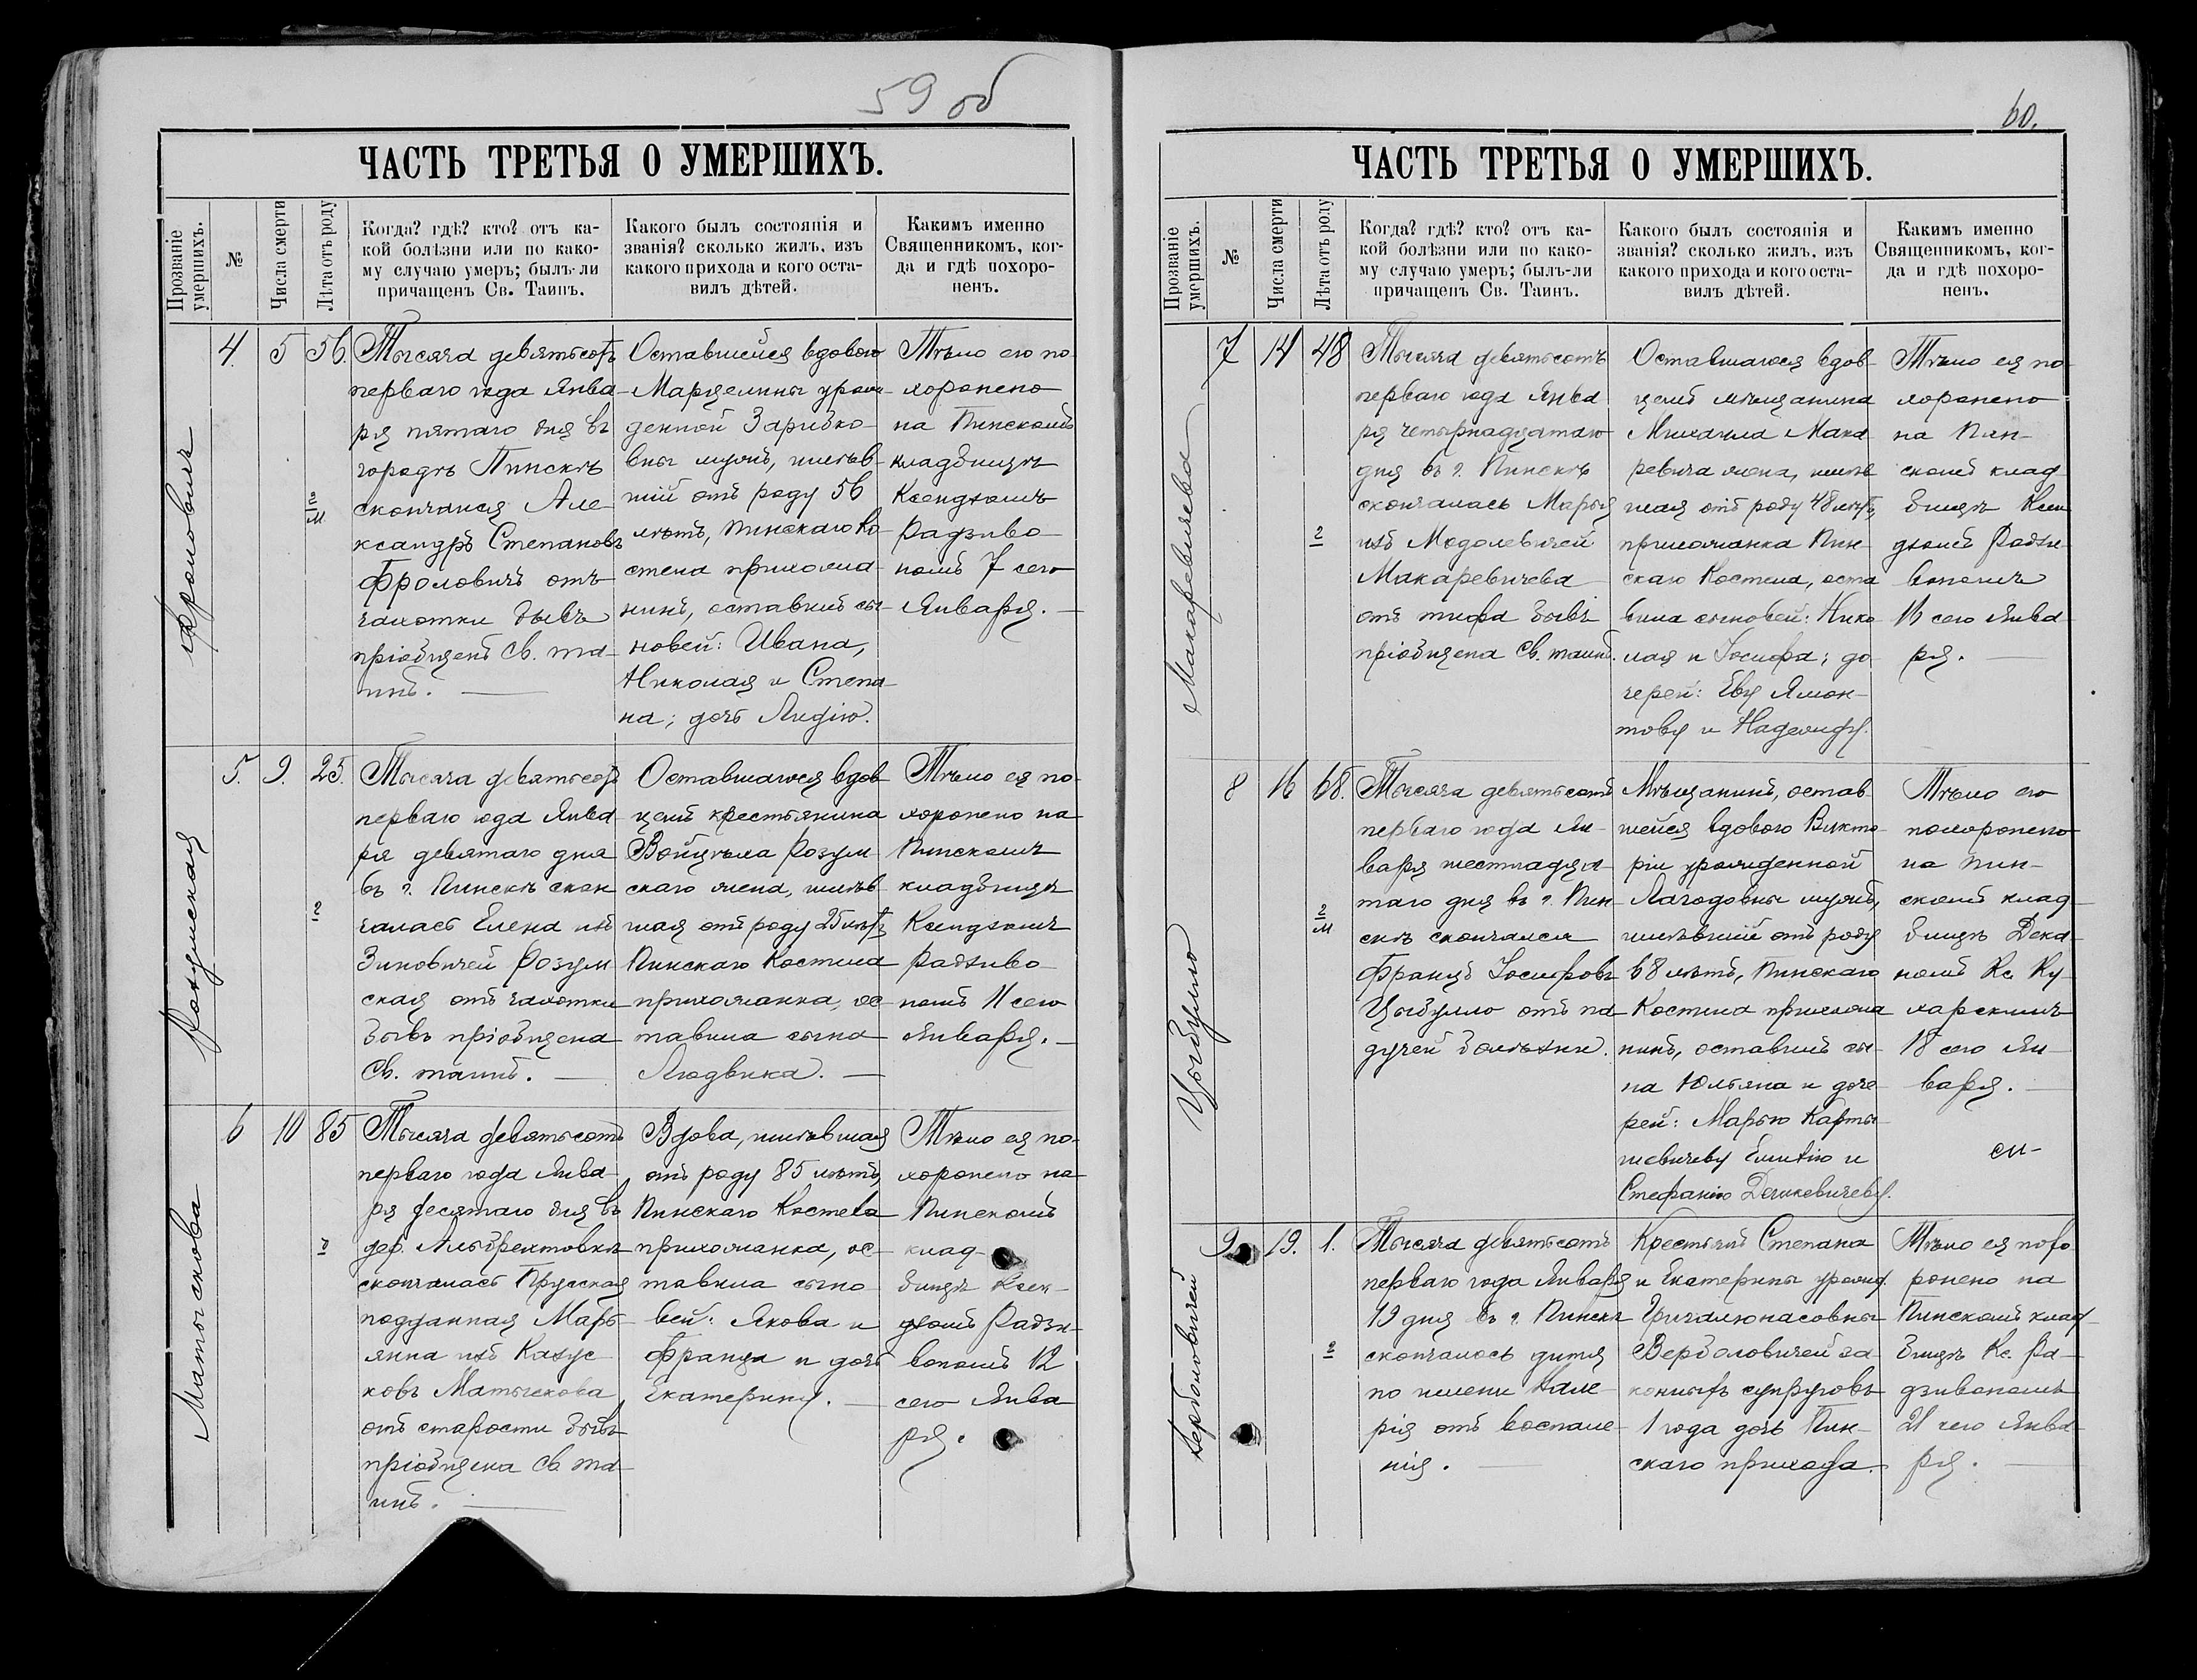 59 об
ЧАСТЬ ТРЕТЬЯ О УМЕРШИХЪ.
Прозваніе умершихъ.
№
Числа смерти
Лѣта отъ роду
Когда? гдѣ? кто? отъ ка-
кой болѣзни или по како-
му случаю умеръ; былъ-ли
причащенъ Св. Таинъ.
Какого былъ состоянія и
званія? сколько жилъ, изъ
какого прихода и кого оста-
вилъ дѣтей.
Какимъ именно
Священникомъ, ког-
да и гдѣ похоро-
ненъ.
Фроловичъ
4.
5
56.
г
м
Тысяча девятьсотъ
перваго года Янва-
ря пятаго дня въ
городѣ Пинскѣ
скончался Але-
ксандръ Степановъ
Фроловичъ отъ
чахотки бывъ
пріобщенъ Св. та-
инъ.
Оставшейся вдовою
Марцелины урож-
денной Зарибко-
вны мужъ, имѣв-
шій отъ роду 56
лѣтъ, Пинскаго Ко-
стела прихожа-
нинъ, оставилъ сы-
новей: Ивана,
Николая и Степа-
на; дочь Лидію.
Тѣло его по-
хоронено
на Пинскомъ
кладбищѣ
Ксендзомъ
Радзиво-
номъ 7 сего
Января.
Розумская
5.
9.
25.
г
Тысяча девятьсотъ
перваго года Янва-
ря девятаго дня
въ г. Пинскѣ скон-
чалась Елена изъ
Зиновичей Розум-
ская отъ чахотки
бывъ пріобщена
Св. таинъ.
Оставшагося вдов-
цемъ крестьянина
Войцѣха Розум-
скаго жена, имѣв-
шая отъ роду 25 лѣтъ
Пинскаго Костела
прихожанка, ос-
тавила сына
Людвика.
Тѣло ея по-
хоронено на
Пинскомъ
кладбищѣ
Ксендзомъ
Радзиво-
номъ 11 сего
Января.
Матыскова
6
10
85
Тысяча девятьсотъ
перваго года Янва-
ря десятаго дня въ
дер. Альбрехтовкѣ
скончалась Прусская
подданная Марь-
янна изъ Казус-
ковъ Матыскова
отъ старости бывъ
пріобщена Св. та-
инъ.
Вдова, имѣвшая
отъ роду 85 лѣтъ,
Пинскаго Костела
прихожанка, ос-
тавила сыно-
вей: Якова и
Франца и дочь
Екатерину.
Тѣло ея по-
хоронено на
Пинскомъ
клад-
бищѣ Ксен-
дзомъ Радзи-
вономъ 12
сего Янва
ря.
60.
ЧАСТЬ ТРЕТЬЯ О УМЕРШИХЪ.
Прозваніе умершихъ.
№
Числа смерти
Лѣта отъ роду
Когда? гдѣ? кто? отъ ка-
кой болѣзни или по како-
му случаю умеръ; былъ-ли
причащенъ Св. Таинъ.
Какого былъ состоянія и
званія? сколько жилъ, изъ
какого прихода и кого оста-
вилъ дѣтей.
Какимъ именно
Священникомъ, ког-
да и гдѣ похоро-
ненъ.
Макаревичева
7
14
48
г
Тысяча девятьсотъ
перваго года Янва
ря четырнадцатаго
дня въ г. Пинскѣ
скончалась Марья
изъ Модолевичей
Макаревичева
отъ тифа бывъ
пріобщена Св. таинъ.
Оставшагося вдов-
цемъ мѣщанина
Михаила Мака
ревича жена, имѣв
шая отъ роду 48 лѣтъ,
прихожанка Пин-
скаго Костела, оста
вила сыновей: Нико
лая и Іосифа; до
черей: Еву Ямон-
тову и Надежду.
Тѣло ея по-
хоронено
на Пин-
скомъ клад-
бищѣ Ксен
дзомъ Радзи-
вономъ
16 сего Янва
ря.
Цыбулло
8
16
68.
г
м
Тысяча девятьсотъ
перваго года Ян-
варя шестнадца-
таго дня въ г. Пин-
скѣ скончался
Францъ Іосифовъ
Цыбулло отъ па-
дучей болѣзни.
Мѣщанинъ, остав-
шейся вдовою Викто-
ріи урожденной
Лагодовны мужъ,
имѣвшій отъ роду
68 лѣтъ, Пинскаго
Костела прихожа
нинъ, оставилъ сы-
на Юльяна и доче-
рей: Марью Карты-
шевичеву Емилію и
Стефанію Дешкевичеву.
Тѣло его
похоронено
на Пин-
скомъ клад-
бищѣ Дека-
номъ Кс. Ку-
харскимъ
18 сего Ян-
варя.
Верболовичей
9
19.
1.
г
Тысяча девятьсотъ
перваго года Января
19 дня въ г. Пинскѣ
скончалось дитя
по имени Вале-
рія отъ воспале-
нія.
Крестьянъ Степана
и Екатерины урожд.
Верболовичей за-
конныхъ супруговъ
1 года дочь Пин-
скаго прихода.
Тѣло ея похо
ронено на
Пинскомъ клад-
бищѣ Кс. Ра-
дзивономъ
21 сего Янва-
ря.